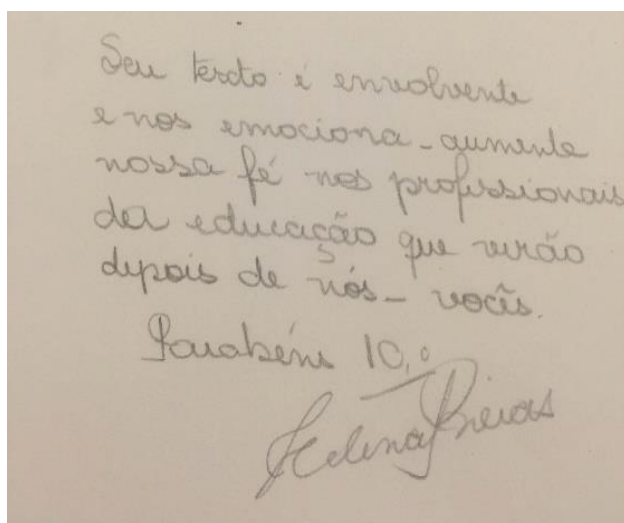 Seu texto é envolvente
e nos emociona - aumenta
nossa fé nos profissionais
da educação que virão
depois de nós - vocês.
Parabéns 10,0
Helena Freitas